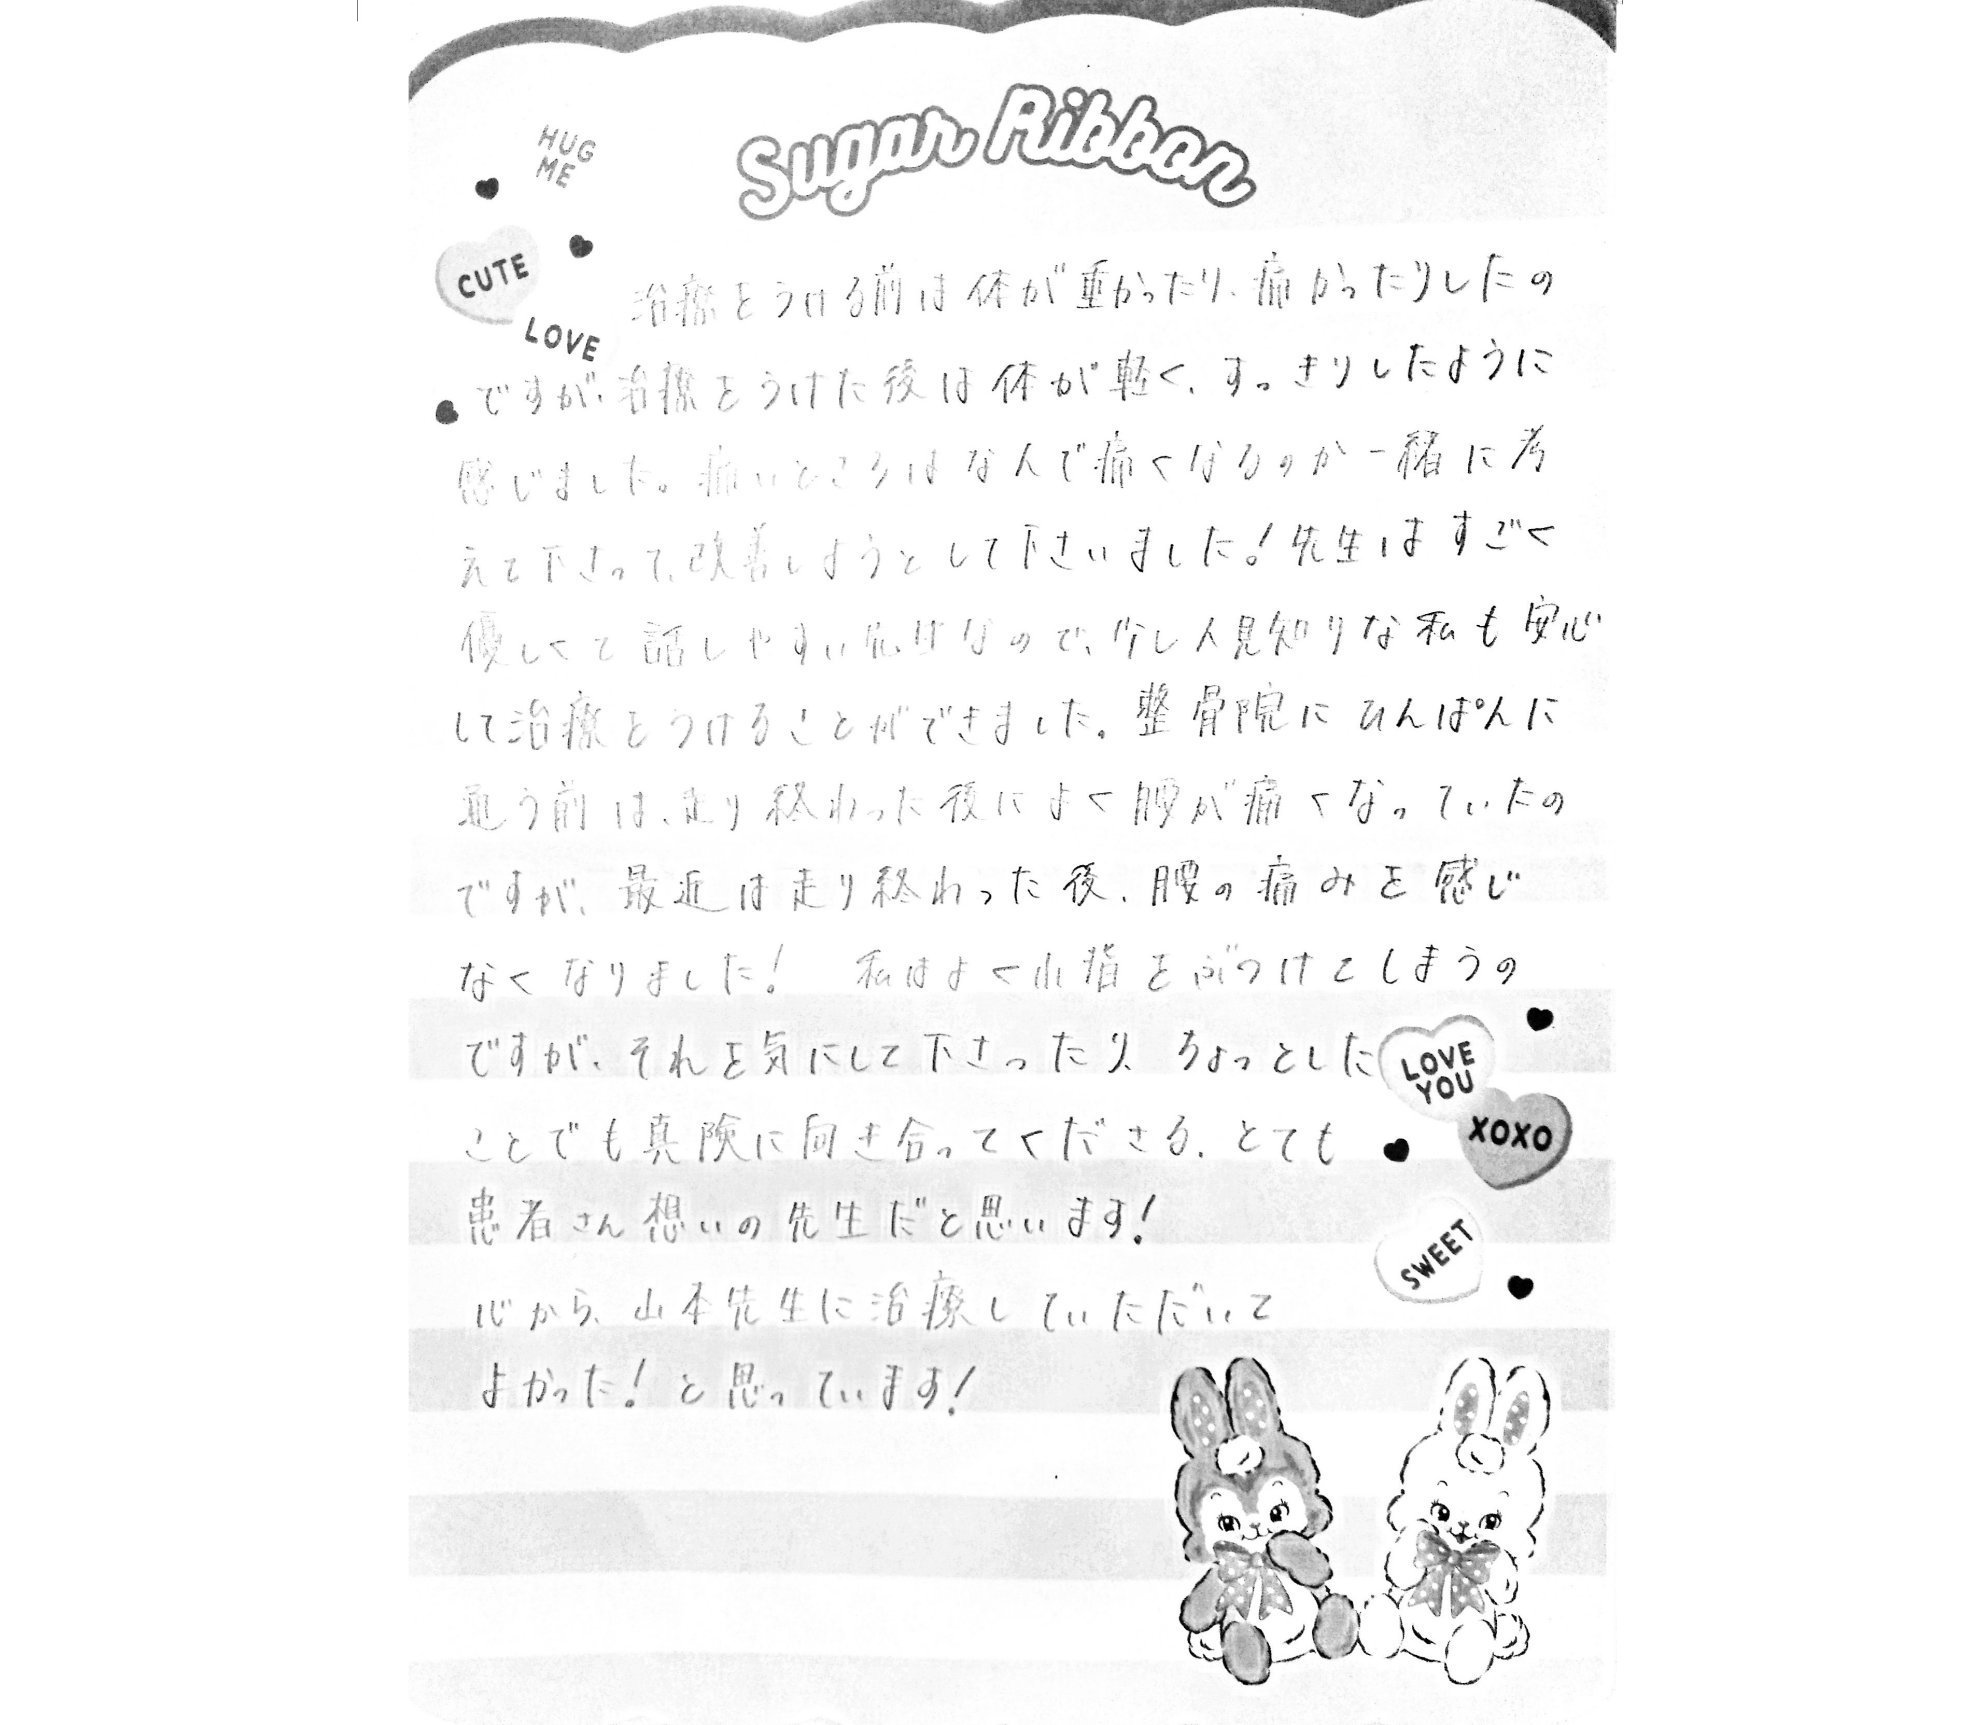 Sugar Ribbon
HUG
ME
CUTE
LOVE
治療をうける前は体が重かったり、痛かったりしたの
ですが、治療をうけた後は体が軽く、すっきりしたように
感じました。痛いところはなんで痛くなるのか一緒に考
えて下さって、改善しようとして下さいました！先生はすごく
優しくて話しやすい先生なので、少し人見知りな私も安心
して治療をうけることができました。整骨院にひんぱんに
通う前は、走り終わった後によく腰が痛くなっていたの
ですが、最近は走り終わった後、腰の痛みを感じ
なくなりました！　私はよく小指をぶつけてしまうの
ですが、それを気にして下さったり、ちょっとした
ことでも真険に向き合ってくださる、とても
患者さん想いの先生だと思います！
心から、山本先生に治療していただいて
よかった！と思っています！
LOVE
YOU
XOXO
SWEET